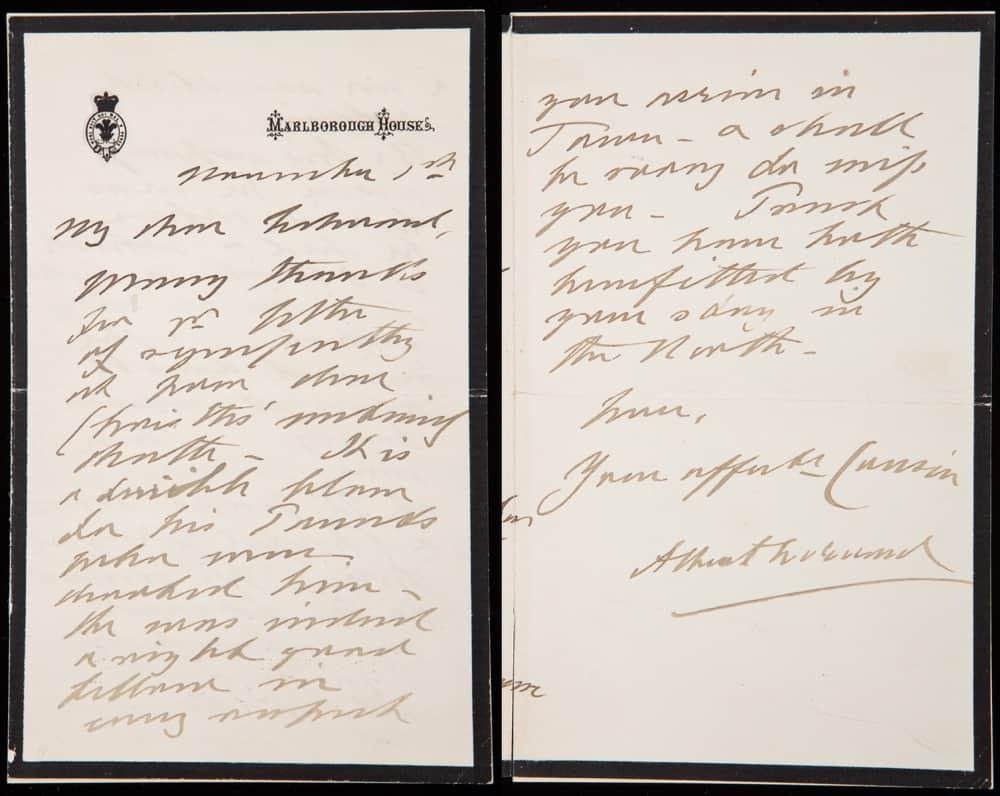 MARLBOROUGH HOUSE,
November 1st
My dear Edward,
Many thanks
for yr letter
of sympathy
at poor dear
Christle's
death - It is
a terrible blow
to his Friends
who were
devoted to him -
He was indeed
a right good
fellow in
every respect
you in
Town - & shall
be sorry to miss
you - Trust
you have both
benefitted by
your stay in
the North -
I am,
Your affecte Cousin
Albert Edward